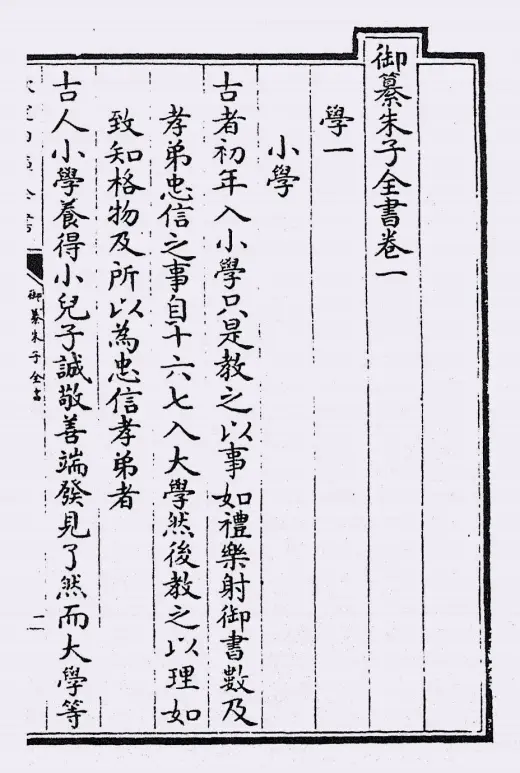 御纂朱子全書卷一
學一
小學
古者初年入小學只是教之以事如禮樂射御書數及
孝弟忠信之事自十六七入大學然後教之以理如
致知格物及所以為忠信孝弟者
古人小學養得小兒子誠敬善端發見了然而大學等
御纂朱子全書